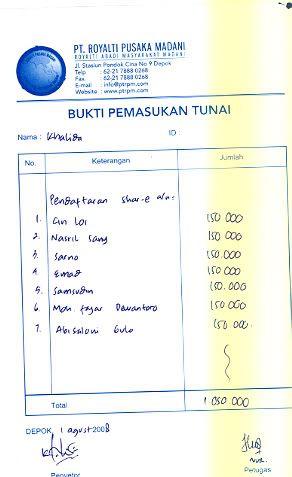 PT. ROYALTI PUSAKA MADANI
ROYALTI ABADI MASYARAKAT MADANI
Jl. Stasiun Pondok Cina No 9 Depok
Telp : 62-21 7888 0268
Fax : 62-21 7888 0268
E-mail : info@ptrpm.com
Website : www.ptrpm.com
BUKTI PEMASUKAN TUNAI
Nama : Khalida ID :
No. Keterangan Jumlah
Pendaftaran shar-e a/n:
1. Cin Loi 150 000
2. Nasril Sang 150 000
3. Sarno 150.000
4. Emad 150.000
5. Samsudin 150.000
6. Moh. Fajar Dewantoro 150 000
7. Abisaloni Gulo 150 000
Total 1.050.000
DEPOK, 1 agust 2008
NUR.
Penyetor Petugas